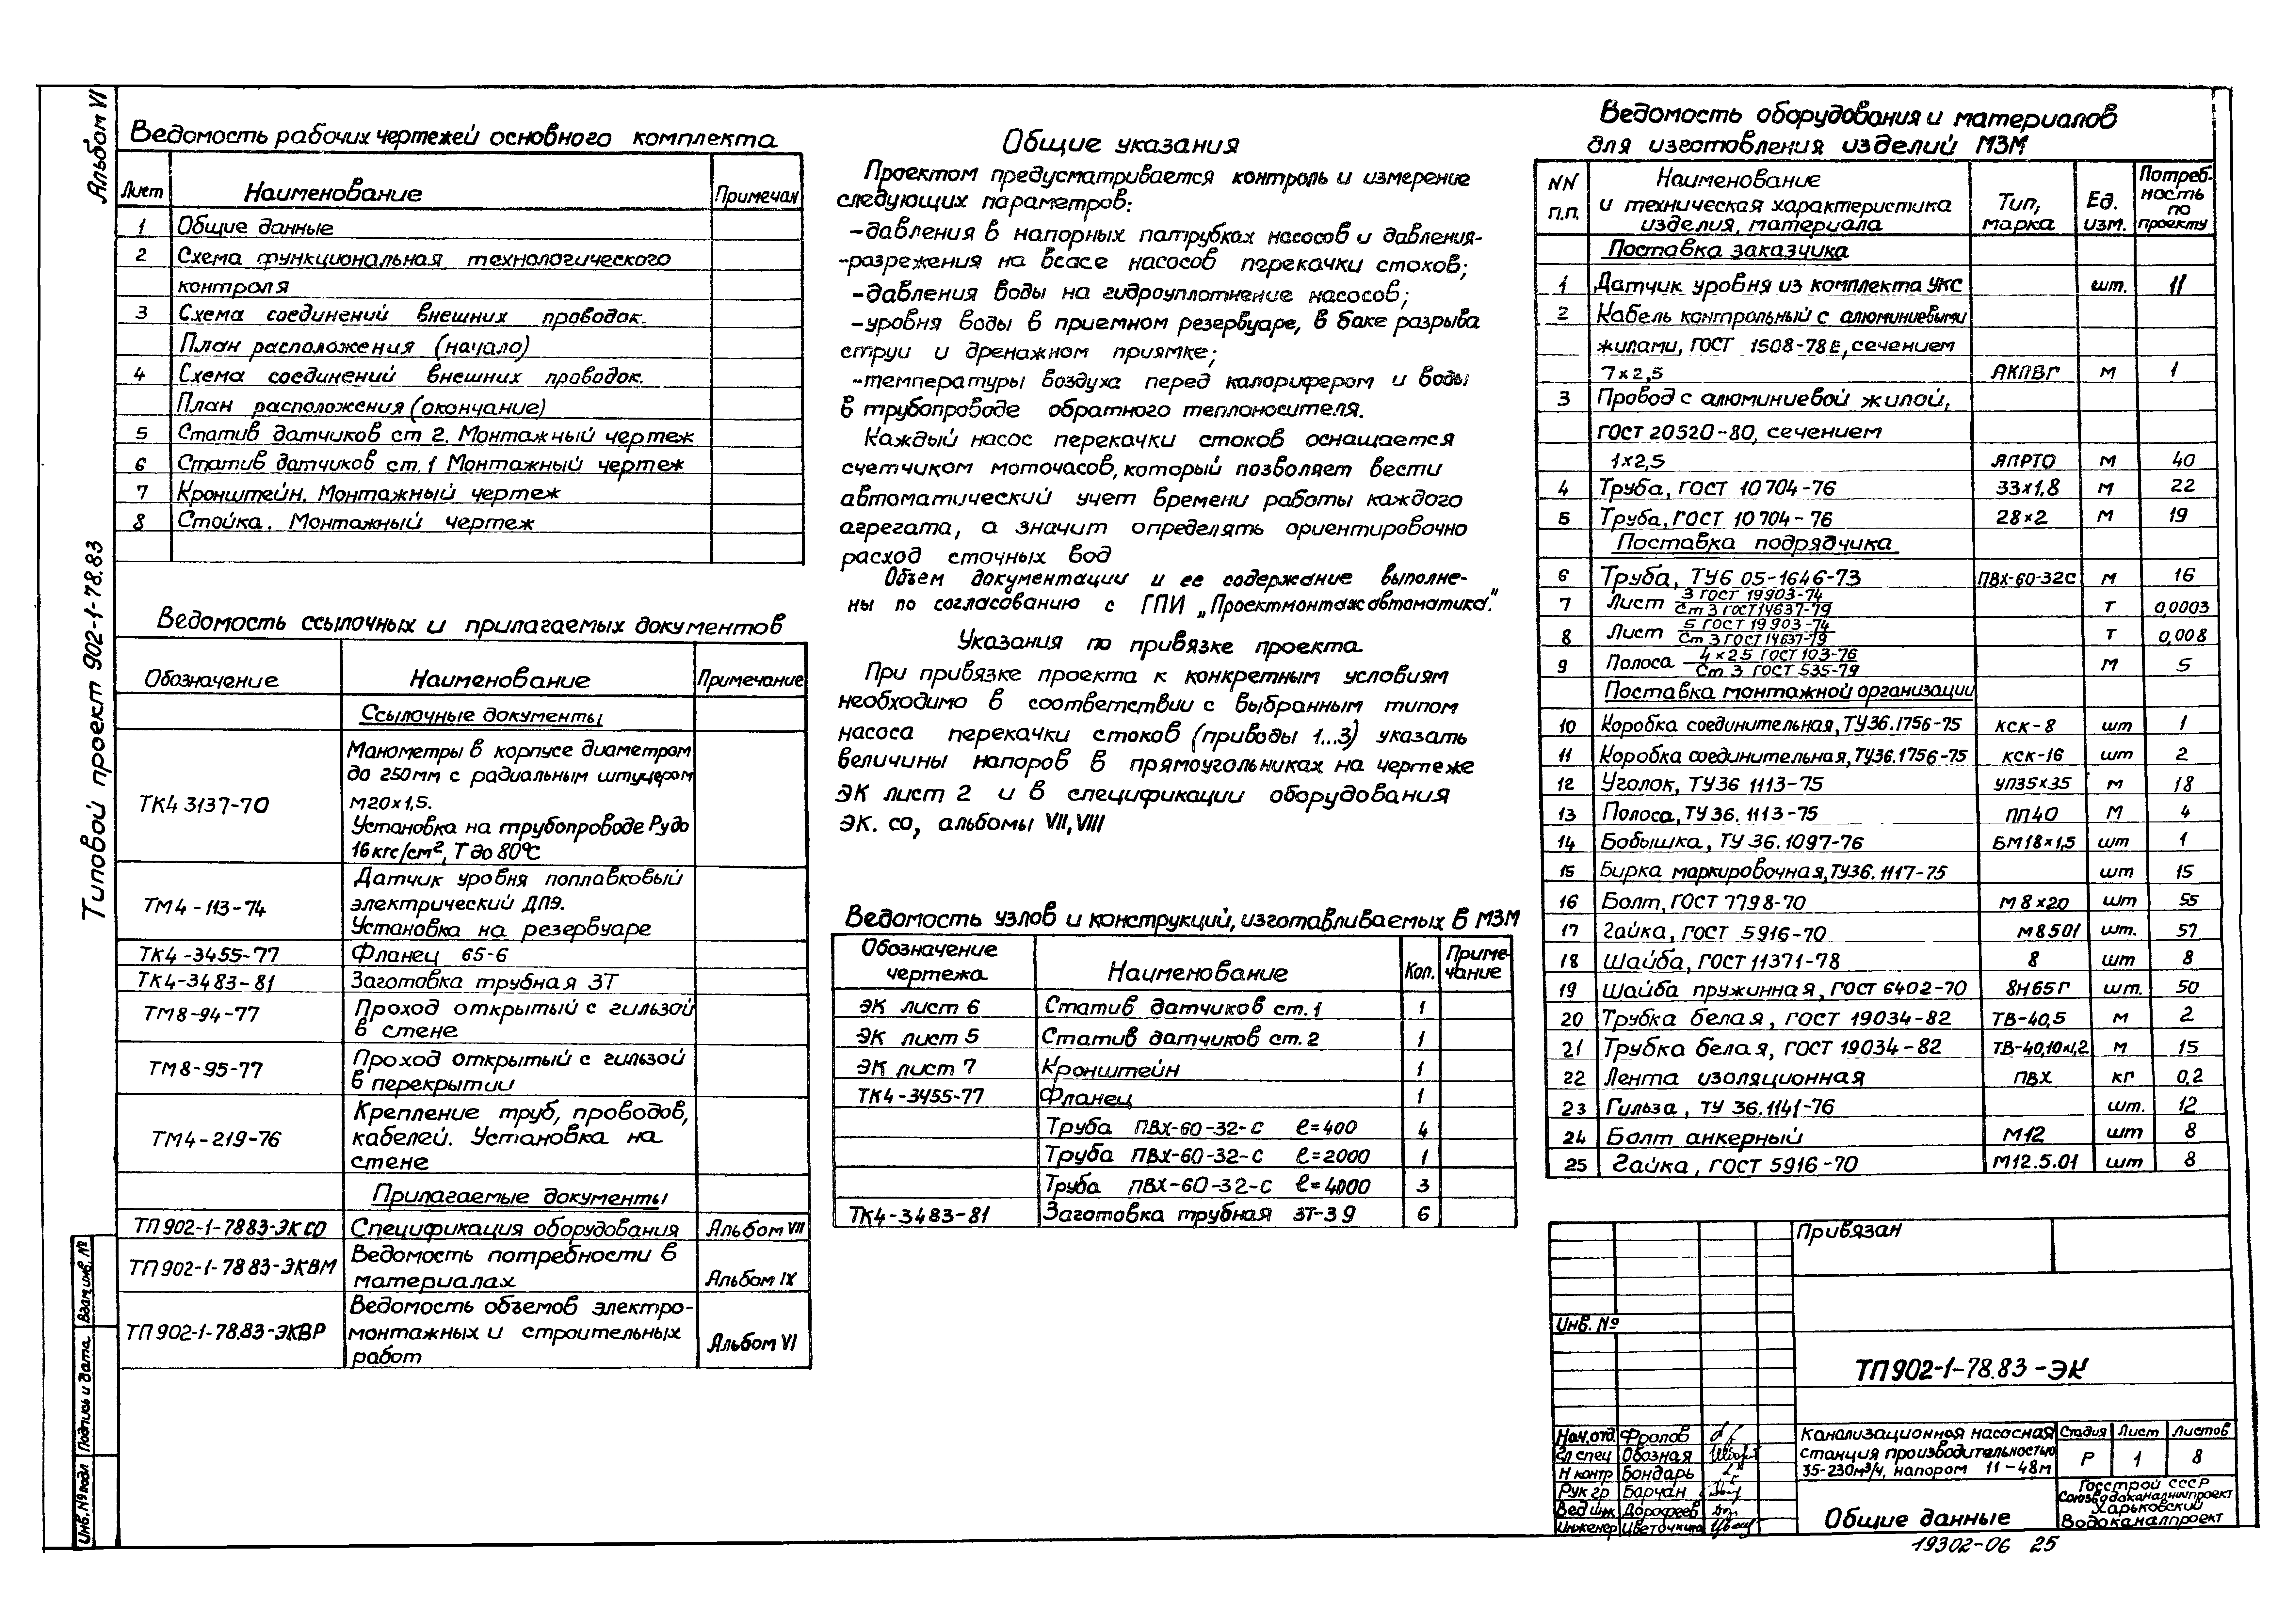 Альбом VI
Типовой проект 902-1-78.83
Ведомость рабочих чертежей основного комплекта
Лист Наименование Примечан
1 Общие данные
2 Схема функциональная технологического
контроля
3 Схема соединений внешних проводок.
План расположения (начало)
4 Схема соединений внешних проводок.
План расположения (окончание)
5 Статив датчиков ст 2. Монтажный чертеж
6 Статив датчиков ст.1 Монтажный чертеж
7 Кронштейн. Монтажный чертеж
8 Стойка. Монтажный чертеж
Ведомость ссылочных и прилагаемых документов
Обозначение Наименование Примечание
Ссылочные документы
ТК4 3137-70 Манометры в корпусе диаметром
до 250мм с радиальным штуцером
М20х1,5.
Установка на трубопроводе Ру до
16 кгс/см², Т до 80°С
ТМ4-113-74 Датчик уровня поплавковый
электрический ДПЭ.
Установка на резервуаре
ТК4-3455-77 Фланец 65-6
ТК4-3483-81 Заготовка трубная ЗТ
ТМ8-94-77 Проход открытый с гильзой
в стене
ТМ8-95-77 Проход открытый с гильзой
в перекрытии
ТМ4-219-76 Крепление труб, проводов,
кабелей. Установка на
стене
Прилагаемые документы
ТП 902-1-78 83-ЭК СО Спецификация оборудования Альбом VII
ТП 902-1-78 83-ЭКВМ Ведомость потребности в
материалах Альбом IX
ТП 902-1-78.83-ЭКВР Ведомость объемов электро-
монтажных и строительных
работ Альбом VI
Общие указания
Проектом предусматривается контроль и измерение
следующих параметров:
-давления в напорных патрубках насосов и давления-
-разрежения на всасе насосов перекачки стоков;
-давления воды на гидроуплотнение насосов;
-уровня воды в приемном резервуаре, в баке разрыва
струи и дренажном приямке;
-температуры воздуха перед калорифером и воды
в трубопроводе обратного теплоносителя.
Каждый насос перекачки стоков оснащается
счетчиком моточасов, который позволяет вести
автоматический учет времени работы каждого
агрегата, а значит определять ориентировочно
расход сточных вод
Объем документации и ее содержание выполне-
ны по согласованию с ГПИ „Проектмонтажавтоматика".
Указания по привязке проекта
При привязке проекта к конкретным условиям
необходимо в соответствии с выбранным типом
насоса перекачки стоков (приводы 1...3) указать
величины напоров в прямоугольниках на чертеже
ЭК лист 2 и в спецификации оборудования
ЭК. СО, альбомы VII, VIII
Ведомость узлов и конструкций, изготавливаемых в МЗМ
Обозначение чертежа Наименование Кол. Приме-чание
ЭК лист 6 Статив датчиков ст.1 1
ЭК лист 5 Статив датчиков ст.2 1
ЭК лист 7 Кронштейн 1
ТК4-3455-77 Фланец 1
Труба ПВХ-60-32-С ℓ=400 4
Труба ПВХ-60-32-С ℓ=2000 1
Труба ПВХ-60-32-С ℓ=4000 3
ТК4-3483-81 Заготовка трубная ЗТ-39 6
Ведомость оборудования и материалов
для изготовления изделий МЗМ
NN п.п. Наименование и техническая характеристика изделия, материала Тип, марка Ед. изм. Потреб-ность по проекту
Поставка заказчика
1 Датчик уровня из комплекта УКС шт. 11
2 Кабель контрольный с алюминиевыми
жилами, ГОСТ 1508-78Е, сечением
7х2,5 АКПВГ м 1
3 Провод с алюминиевой жилой,
ГОСТ 20520-80, сечением
1х2,5 АПРТО м 40
4 Труба, ГОСТ 10704-76 33х1,8 м 22
5 Труба, ГОСТ 10704-76 28х2 м 19
Поставка подрядчика
6 Труба, ТУ6 05-1646-73 ПВХ-60-32С м 16
7 Лист 3 ГОСТ 19903-74 / Ст 3 ГОСТ 14637-79 т 0,0003
8 Лист 5 ГОСТ 19903-74 / Ст 3 ГОСТ 14637-79 т 0,008
9 Полоса 4х25 ГОСТ 103-76 / Ст 3 ГОСТ 535-79 м 5
Поставка монтажной организации
10 Коробка соединительная, ТУ36.1756-75 КСК-8 шт 1
11 Коробка соединительная, ТУ36.1756-75 КСК-16 шт 2
12 Уголок, ТУ36 1113-75 УП35х35 м 18
13 Полоса, ТУ 36. 1113-75 ПП40 м 4
14 Бобышка, ТУ 36.1097-76 БМ18х1,5 шт 1
15 Бирка маркировочная, ТУ36.1117-75 шт 15
16 Болт, ГОСТ 7798-70 М8х20 шт 55
17 Гайка, ГОСТ 5916-70 М8501 шт. 57
18 Шайба, ГОСТ 11371-78 8 шт 8
19 Шайба пружинная, ГОСТ 6402-70 8Н65Г шт. 50
20 Трубка белая, ГОСТ 19034-82 ТВ-40,5 м 2
21 Трубка белая, ГОСТ 19034-82 ТВ-40,10х1,2 м 15
22 Лента изоляционная ПВХ кг 0,2
23 Гильза, ТУ 36.1141-76 шт. 12
24 Болт анкерный М12 шт 8
25 Гайка, ГОСТ 5916-70 М12.5.01 шт 8
Привязан
Инв. №
ТП 902-1-78.83-ЭК
Нач.отд. Фролов
Гл спец Обозная
Н контр Бондарь
Рук гр Барчан
Вед инж Дорофеев
Инженер Цветочкина
Канализационная насосная
станция производительностью
35-230м³/ч, напором 11-48м
Стадия Лист Листов
Р 1 8
Общие данные
Госстрой СССР
Союзводоканалниипроект
Харьковский
Водоканалпроект
19302-06 25
Взам.инв. №
Подпись и дата
Инв. № подл